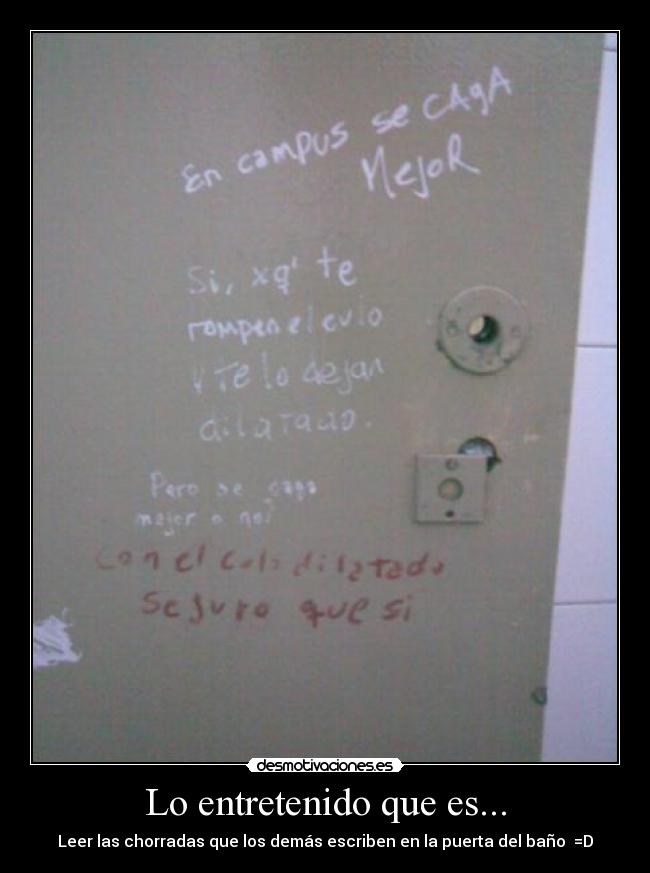 En campus se CAgA
MejoR
Si, xq' te
rompen el culo
y te lo dejan
dilatado.
Pero se caga
mejor o no?
Con el culo dilatado
seguro que si
desmotivaciones.es
Lo entretenido que es...
Leer las chorradas que los demás escriben en la puerta del baño =D